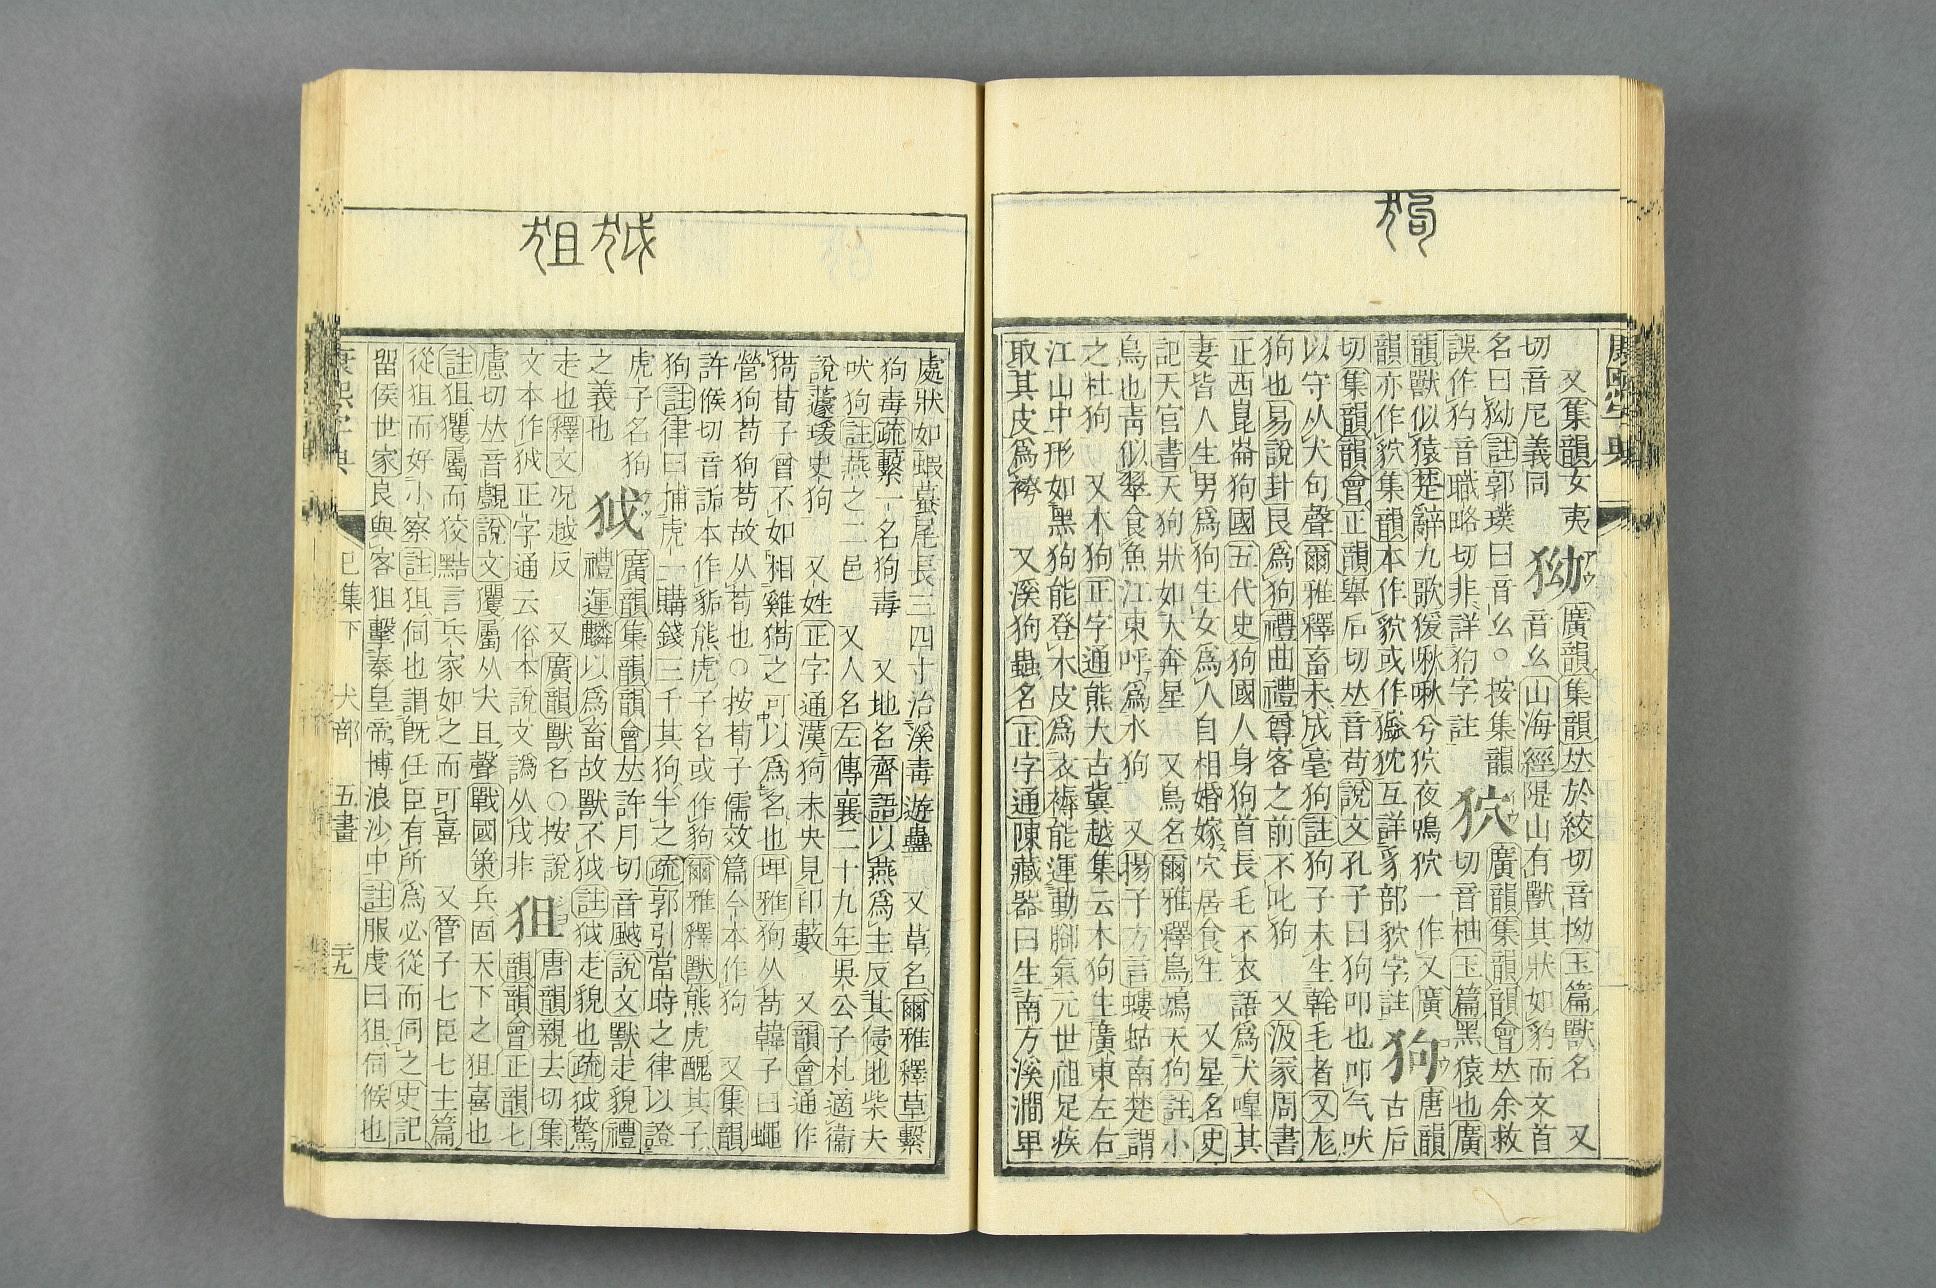 狗
康熙字典
又集韻女夷狕廣韻集韻𠀤於絞切音拗玉篇獸名 又
切音尼義同 音幺山海經隄山有獸其狀如豹而文首
名曰狕註郭璞曰音幺○按集韻狖廣韻集韻韻會𠀤余救
誤作㺃音職略切非詳㺃字註 切音柚玉篇黑猿也廣
韻獸似猿楚辭九歌猨啾啾兮狖夜鳴狖一作又廣狗唐韻
韻亦作集韻本作貁或作互詳豸部貁字註 古后
切集韻韻會正韻舉后切𠀤音苟說文孔子曰狗叩也叩气吠
以守从犬句聲爾雅釋畜未成毫狗註狗子未生毛者又尨
狗也易說卦艮爲狗禮曲禮尊客之前不叱狗 又汲冢周書
正西崑崙狗國五代史狗國人身狗首長毛不衣語爲犬嘷其
妻皆人生男爲狗生女爲人自相婚嫁穴居食生 又星名史
記天官書天狗狀如大奔星 又鳥名爾雅釋鳥鴗天狗註小
鳥也靑似翠食魚江東呼爲水狗 又揚子方言螻蛄南楚謂
之杜狗 又木狗正字通熊大古冀越集云木狗生廣東左右
江山中形如黑狗能登木皮爲衣褥能運動腳氣元世祖足疾
取其皮爲袴 又溪狗蟲名正字通陳藏器曰生南方溪澗卑
狘狙
處狀如蝦蟇尾長三四寸治溪毒遊蠱 又草名爾雅釋草蘩
狗毒疏蘩一名狗毒 又地名齊語以燕爲主反其侵地柴夫
吠狗註燕之二邑 又人名左傳襄二十九年吳公子札適衞
說蘧瑗史狗 又姓正字通漢狗未央見印藪 又韻會通作
荀子曾不如相雞之可以爲名也埤雅狗从苟韓子曰蠅
營狗苟狗苟故从苟也○按荀子儒效篇今本作狗 又集韻
許候切音詬本作豞熊虎子名或作豿爾雅釋獸熊虎醜其子
狗註律曰捕虎一購錢三千其狗半之疏郭引當時之律以證
虎子名狗狘廣韻集韻韻會𠀤許月切音䬂說文獸走貌禮
之義也 禮運麟以爲畜故獸不狘註狘走貌也疏狘驚
走也釋文况越反 又廣韻獸名○按說狙唐韻親去切集
文本作狘正字通云俗本說文譌从戌非 韻韻會正韻七
慮切𠀤音覷說文玃屬从犬且聲戰國策兵固天下之狙喜也
註狙玃屬而狡黠言兵家如之而可喜 又管子七臣七主篇
從狙而好小察註狙伺也謂旣任臣有所爲必從而伺之史記
留侯世家良與客狙擊秦皇帝博浪沙中註服虔曰狙伺候也
康熙字典 巳集下 犬部 五畫 二十九